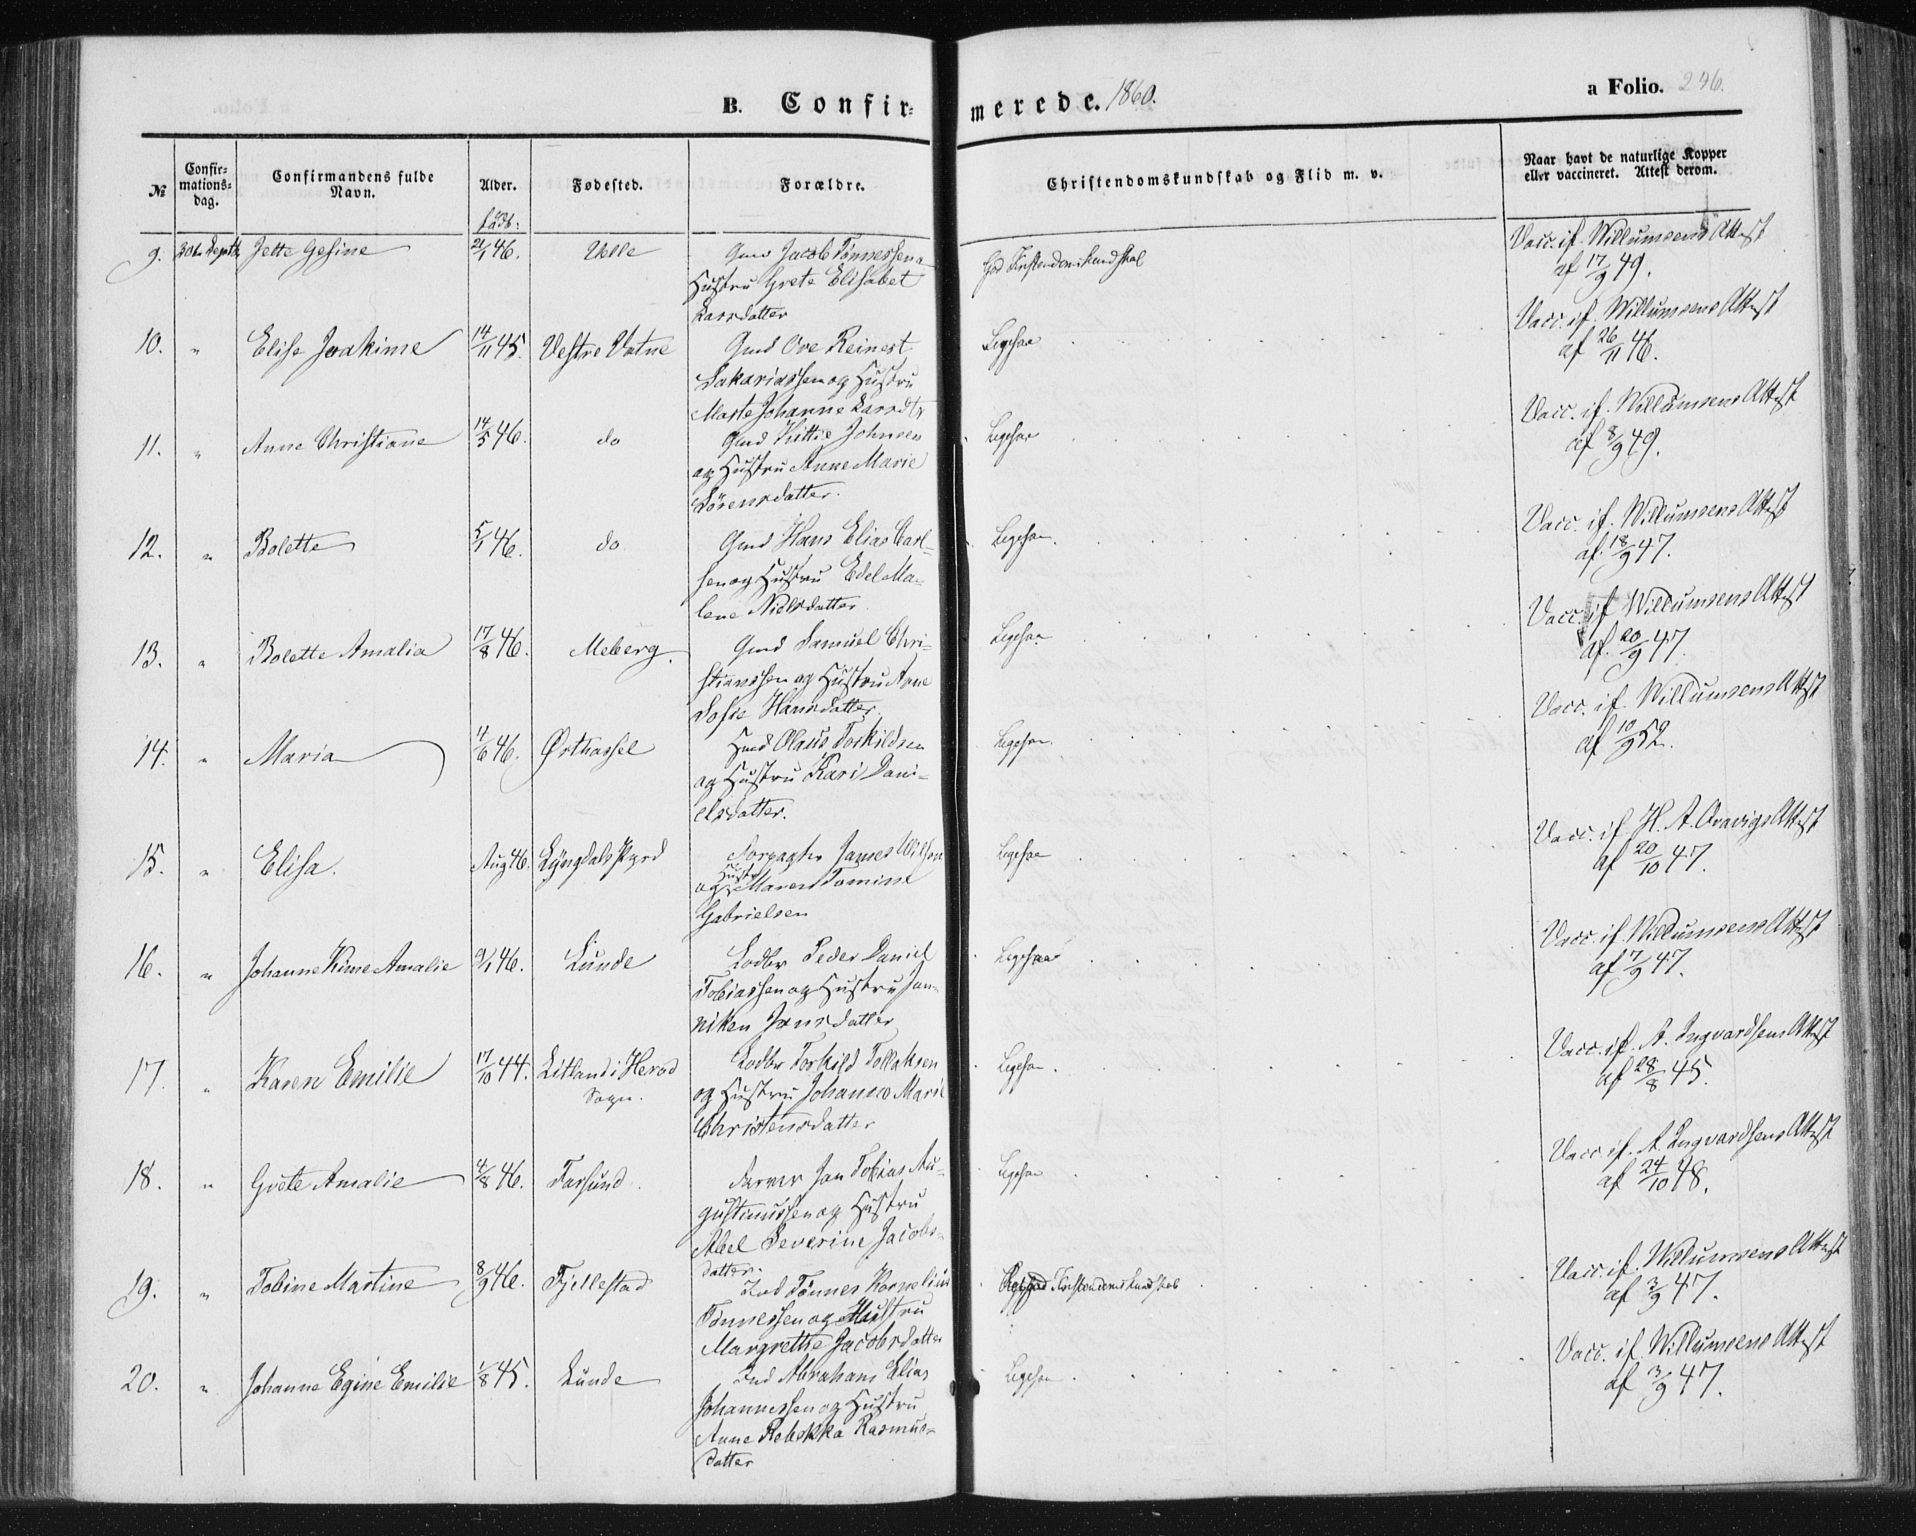 B. Confir-
merede. 1860.
a Folio. 246.
№
Confir-
mations-
dag.
Confirmandens fulde
Navn.
Alder.
Fødested.
Forældre.
Christendomskundskab og Flid m. v.
Naar havt de naturlige Kopper
eller vaccineret. Attest derom.
født:
9. 30te Septb Jette Gesine 21/1 46. Velle Gmd Jacob Tønnessen
Hustru Grete Elisabet
Larsdatter
God Kristendomskundskab
Vacc. if. Willumsens Attest
af 17/9 49.
10. " Elise Joakime 14/11 45. Vestre Vatne Gmd Ove Reinert
Sakariassen og Hustru
Marte Johanne Larsdtr
Ligesaa
Vacc. if. Willumsens Attest
af 26/11 46.
11. " Anne Christiane 14/5 46. do Gmd Johnsen
og Hustru Anne Marie
Sörensdatter.
Ligesaa
Vacc. if. Willumsens Attest
af 8/9 49.
12. " Bolette 5/1 46. do Gmd Hans Elias Carl-
sen og Hustru Edel Ma-
lene Nielsdatter.
Ligesaa.
Vacc. if. Willumsens Attest
af. 18/9 47.
13. " Bolette Amalia 17/8 46. Meberg. Gmd Samuel Chri-
stianssen og Hustru Anne
Sofie Hansdatter.
Ligesaa
Vacc. if Willumsens Attest
af. 20/9 47.
14. " Maria 4/6 46. Østhassel Hmd Olaus Torkildsen
og Hustru Kari Dani-
elsdatter.
Ligesaa.
Vacc. if. Willumsens Attest
af 10/9 52.
15. " Elisa. Aug 46. Lyngdals Pgrd Forpagter James Wilson
og Hustr Maren Tomine
Gabrielsen
Ligesaa
Vacc. if H. A. Aravigs Attest
af 20/10 47.
16. " Johanne Kime Amalie 9/1 46. Lunde Lodbr Peder Daniel
Tobiassen og Hustru Jan-
niken Jansdatter
Ligesaa
Vacc. if. Willumsens Attest
af 7/9 47.
17. " Karen Emilie 17/10 44. Litland i Herad
Sogn.
Lodbr Torkild Tollaksen
og Hustru Johanne Marie
Christensdatter
Ligesaa.
Vacc. if. A. Ingvardsens Attest
af 28/8 45.
18. " Grete Amalie 4/8 46. Farsund. Farver Jan Tobias Au-
gustinussen og Hustru
Abel Severine Jacobs-
datter.
Ligesaa
Vacc. if. A Ingvardsens Attest
af 24/10 48.
19. " Tobine Martine 8/9 46. Fjellestad Ind Tønnes Kornelius
Tønnessen og Hustru
Margrethe Jacobsdatter
Kristendomskundskab
Vacc. if. Willumsens Attest
af 3/9 47.
20. " Johanne Egine Emilie 1/8 45. Lunde Ind Abraham Elias
Johannessen og Hustru
Anne Rebekka Rasmus-
datter
Ligesaa
Vacc. if. Willumsens Attest
af 3/9 47.